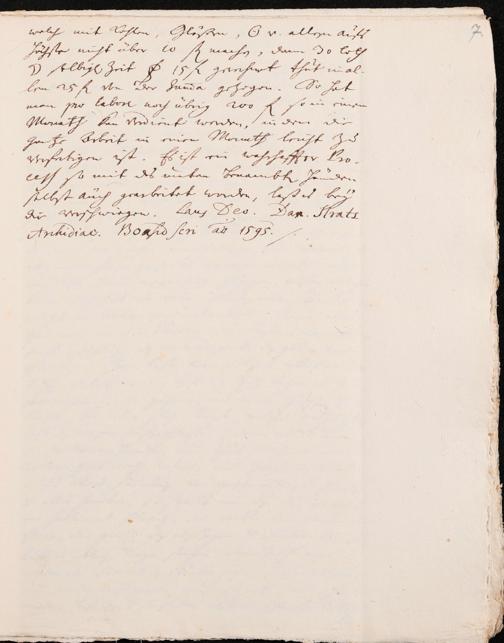 7
welch mit Kohlen, Gläßern, ☉ v. allem auffs
höchste nicht über 10 machs, dann 30 loth
☽ selbige Zeit 15 gerechnet thut in al-
len 25 von Der Summa gezogen. So hat
man pro labore noch übrig 200 so in einem
Monath kan verdient werden, in dem die
gantze Arbeit in einen Monath leicht zu
verfertigen ist. Es ist ein wahrhaffter Pro-
cess so mit des unten benambten Händen
selbst auch gearbeitet worden, laß es bey
dir verschwiegen. Laus Deo. Dan. Strats
Archidiac. scri 1595.